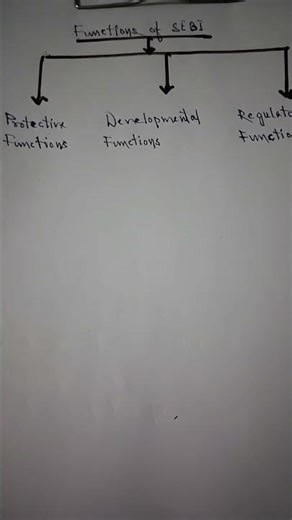 Functions of SEBI
Protective Developmental Regulato
Functions Functions Functio